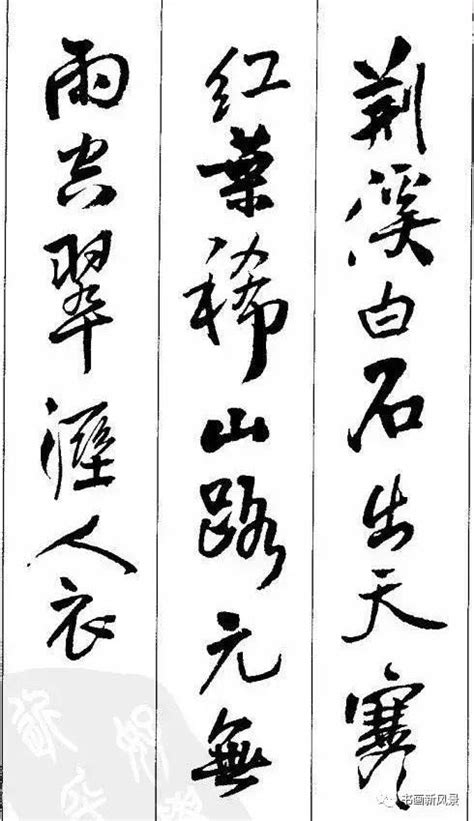 荆溪白石出天寒
红葉稀山路元無
雨空翠溼人衣
书画新风景